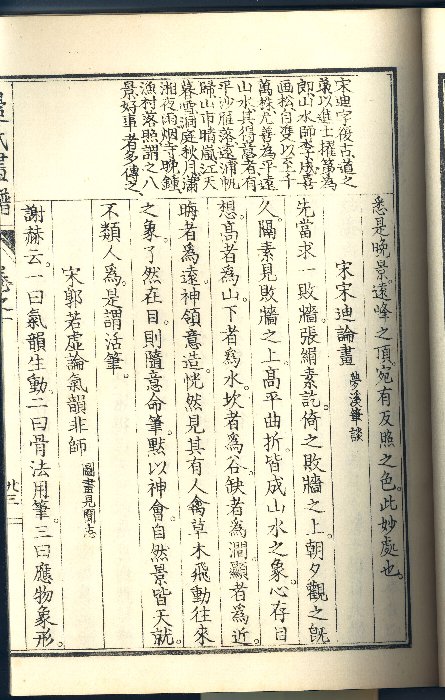 宋迪字復古道之
弟以進士擢第為
郎山水師李成喜
画松自雙以至千
萬株尤善為平遠
山水其得意者有
平沙雁落遠浦帆
歸山市晴嵐江天
暮雪洞庭秋月瀟
湘夜雨烟寺晩鐘
漁村落照謂之八
景好事者多傳之
悉是晩景遠峰之頂宛有反照之色。此妙處也。
宋宋迪論畫 夢溪筆談
先當求一敗牆。張絹素訖。倚之敗牆之上。朝夕觀之旣
久。隔素見敗牆之上。高平曲折。皆成山水之象。心存目
想。高者爲山。下者爲水。坎者爲谷。缺者爲澗。顯者爲近
晦者爲遠。神領意造。恍然見其有人禽草木飛動往來
之象。了然在目。則隨意命筆。黙以神會。自然景皆天就。
不類人爲。是謂活筆。
宋郭若虚論氣韻非師 圖畫見聞志
謝赫云。一曰氣韻生動。二曰骨法用筆。三曰應物象形。
畫譜
廿三